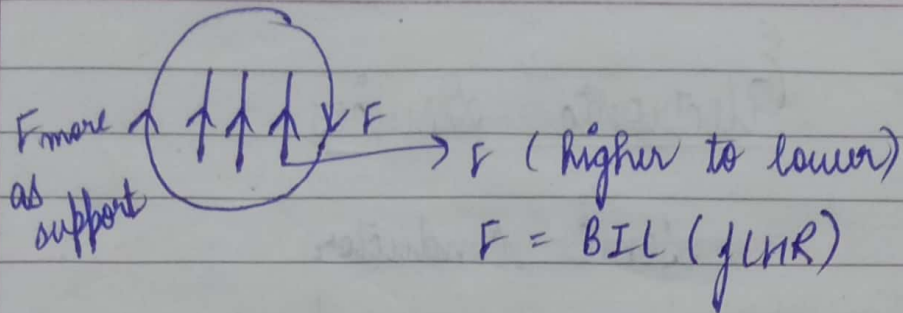 F more
as
support
F
F (higher to lower)
F = BIL (fLHR)